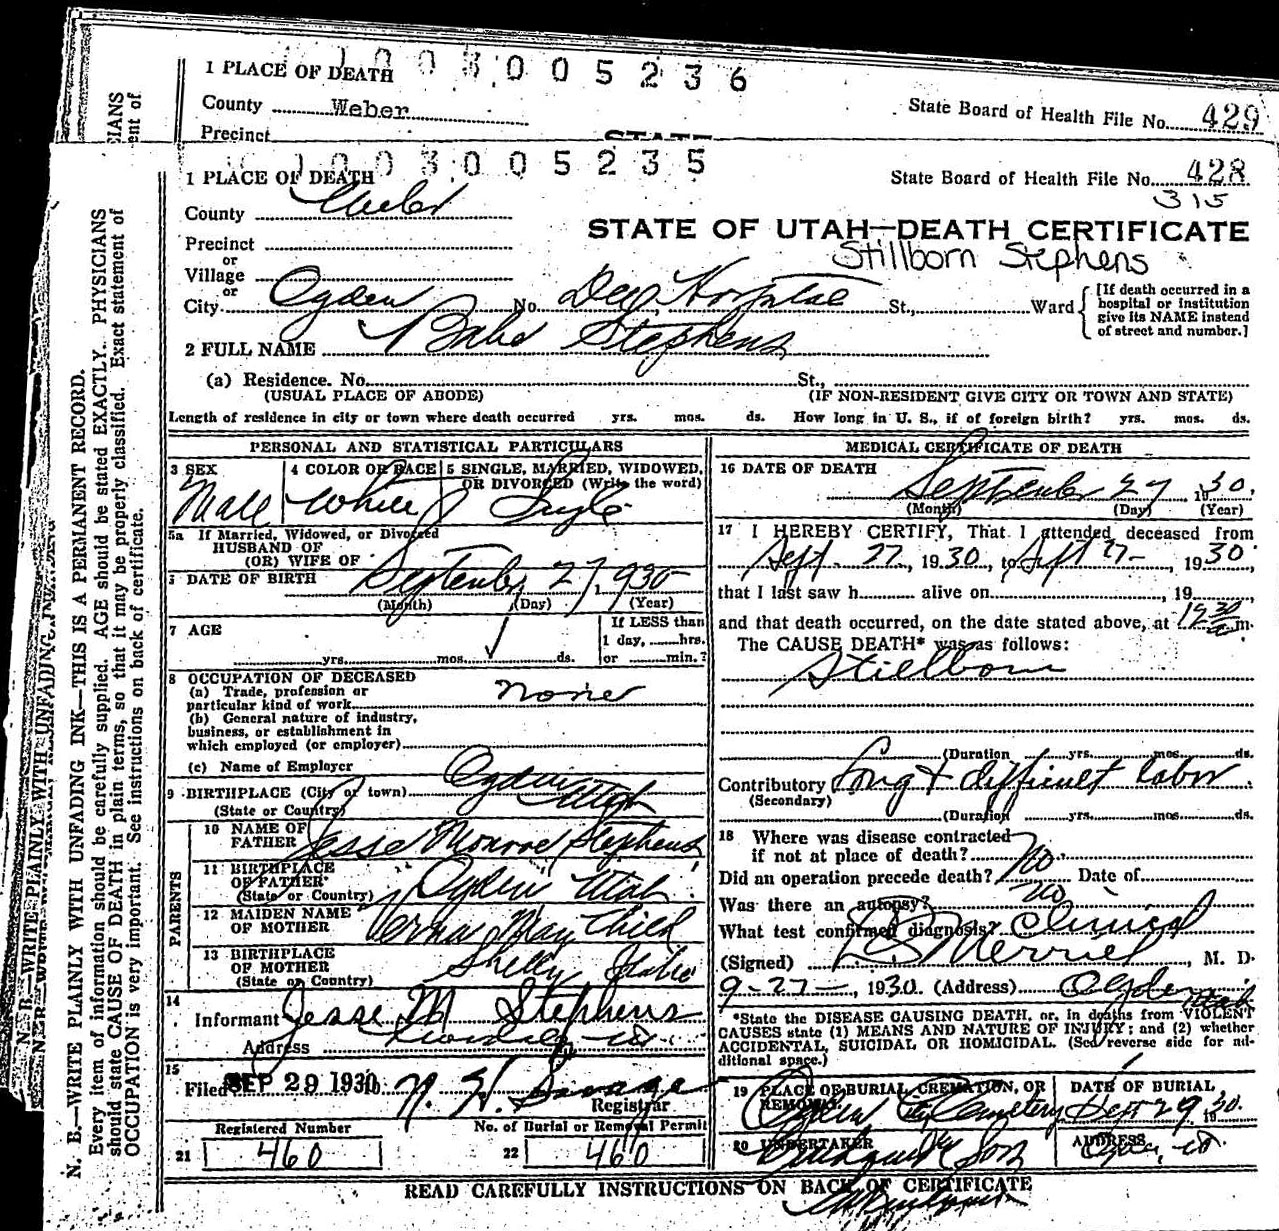 1003005236
1 PLACE OF DEATH
County Weber
State Board of Health File No. 429
Precinct
STATE
1003005235
1 PLACE OF DEATH
State Board of Health File No. 428
315
County Weber
STATE OF UTAH—DEATH CERTIFICATE
Stillborn Stephens
Precinct
or
Village
or
City Ogden No. Dee Hospital St., Ward
[If death occurred in a hospital or institution give its NAME instead of street and number.]
2 FULL NAME Babe Stephens
(a) Residence. No. St.,
(USUAL PLACE OF ABODE) (IF NON-RESIDENT GIVE CITY OR TOWN AND STATE)
Length of residence in city or town where death occurred yrs. mos. ds. How long in U. S., if of foreign birth? yrs. mos. ds.
PERSONAL AND STATISTICAL PARTICULARS
3 SEX 4 COLOR OR RACE 5 SINGLE, MARRIED, WIDOWED, OR DIVORCED (Write the word)
Male White Single
5a If Married, Widowed, or Divorced
HUSBAND OF
(OR) WIFE OF
6 DATE OF BIRTH September 27 1930
(Month) (Day) (Year)
7 AGE
yrs. mos. ds.
If LESS than
1 day, hrs.
or min.?
8 OCCUPATION OF DECEASED
(a) Trade, profession or
particular kind of work none
(b) General nature of industry,
business, or establishment in
which employed (or employer)
(c) Name of Employer
9 BIRTHPLACE (City or town) Ogden
(State or Country) Utah
PARENTS
10 NAME OF FATHER Jesse Monroe Stephens
11 BIRTHPLACE OF FATHER (State or Country) Ogden Utah
12 MAIDEN NAME OF MOTHER Verna May Child
13 BIRTHPLACE OF MOTHER (State or Country) Shelly Idaho
14
Informant Jesse M Stephens
Address
15
Filed SEP 29 1930 Savage
Registrar
Registered Number No. of Burial or Removal Permit
21 460 22 460
MEDICAL CERTIFICATE OF DEATH
16 DATE OF DEATH
September 27, 1930.
(Month) (Day) (Year)
17 I HEREBY CERTIFY, That I attended deceased from
Sept. 27, 1930, to Sept 27, 1930,
that I last saw h alive on , 19
and that death occurred, on the date stated above, at m.
The CAUSE DEATH* was as follows:
Stillborn
(Duration yrs. mos. ds.
Contributory Long & difficult labor
(Secondary)
(Duration yrs. mos. ds.
18 Where was disease contracted
if not at place of death?
Did an operation precede death? No Date of
Was there an autopsy? no
What test confirmed diagnosis? Clinical
(Signed) Merrill, M. D.
9-27-, 1930. (Address) Ogden Utah
*State the DISEASE CAUSING DEATH, or, in deaths from VIOLENT
CAUSES state (1) MEANS AND NATURE OF INJURY; and (2) whether
ACCIDENTAL, SUICIDAL OR HOMICIDAL. (See reverse side for ad-
ditional space.)
19 PLACE OF BURIAL, CREMATION, OR REMOVAL DATE OF BURIAL
Ogden City Cemetery Sept 29 1930.
20 UNDERTAKER ADDRESS
& Son Ogden, U
READ CAREFULLY INSTRUCTIONS ON BACK OF CERTIFICATE
N. B.—WRITE PLAINLY WITH UNFADING INK—THIS IS A PERMANENT RECORD.
Every item of information should be carefully supplied. AGE should be stated EXACTLY. PHYSICIANS
should state CAUSE OF DEATH in plain terms, so that it may be properly classified. Exact statement of
OCCUPATION is very important. See instructions on back of certificate.